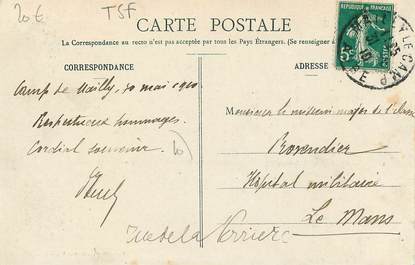 20 € TSF
CARTE POSTALE
La Correspondance au recto n'est pas acceptée par tous les Pays Étrangers. (Se renseigner à
CORRESPONDANCE
ADRESSE
Camp de Mailly, 10 mai 1910
Respectueux hommages.
Cordial souvenir.
Monsieur le médecin major de 1ère classe
Rovendier
Hôpital militaire
Le Mans
5c
LE CAMP
Rue de la Verrière